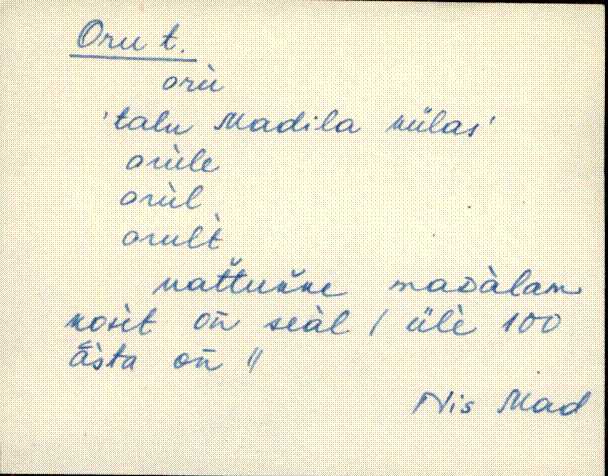 Oru t.
orù
'talu Madila külas'
orùle
orùl
orult̀
nat̆tukke maᴅàlam
kosèt on̄ seàl / ülè 100
āsta on̄ //
Nis Mad